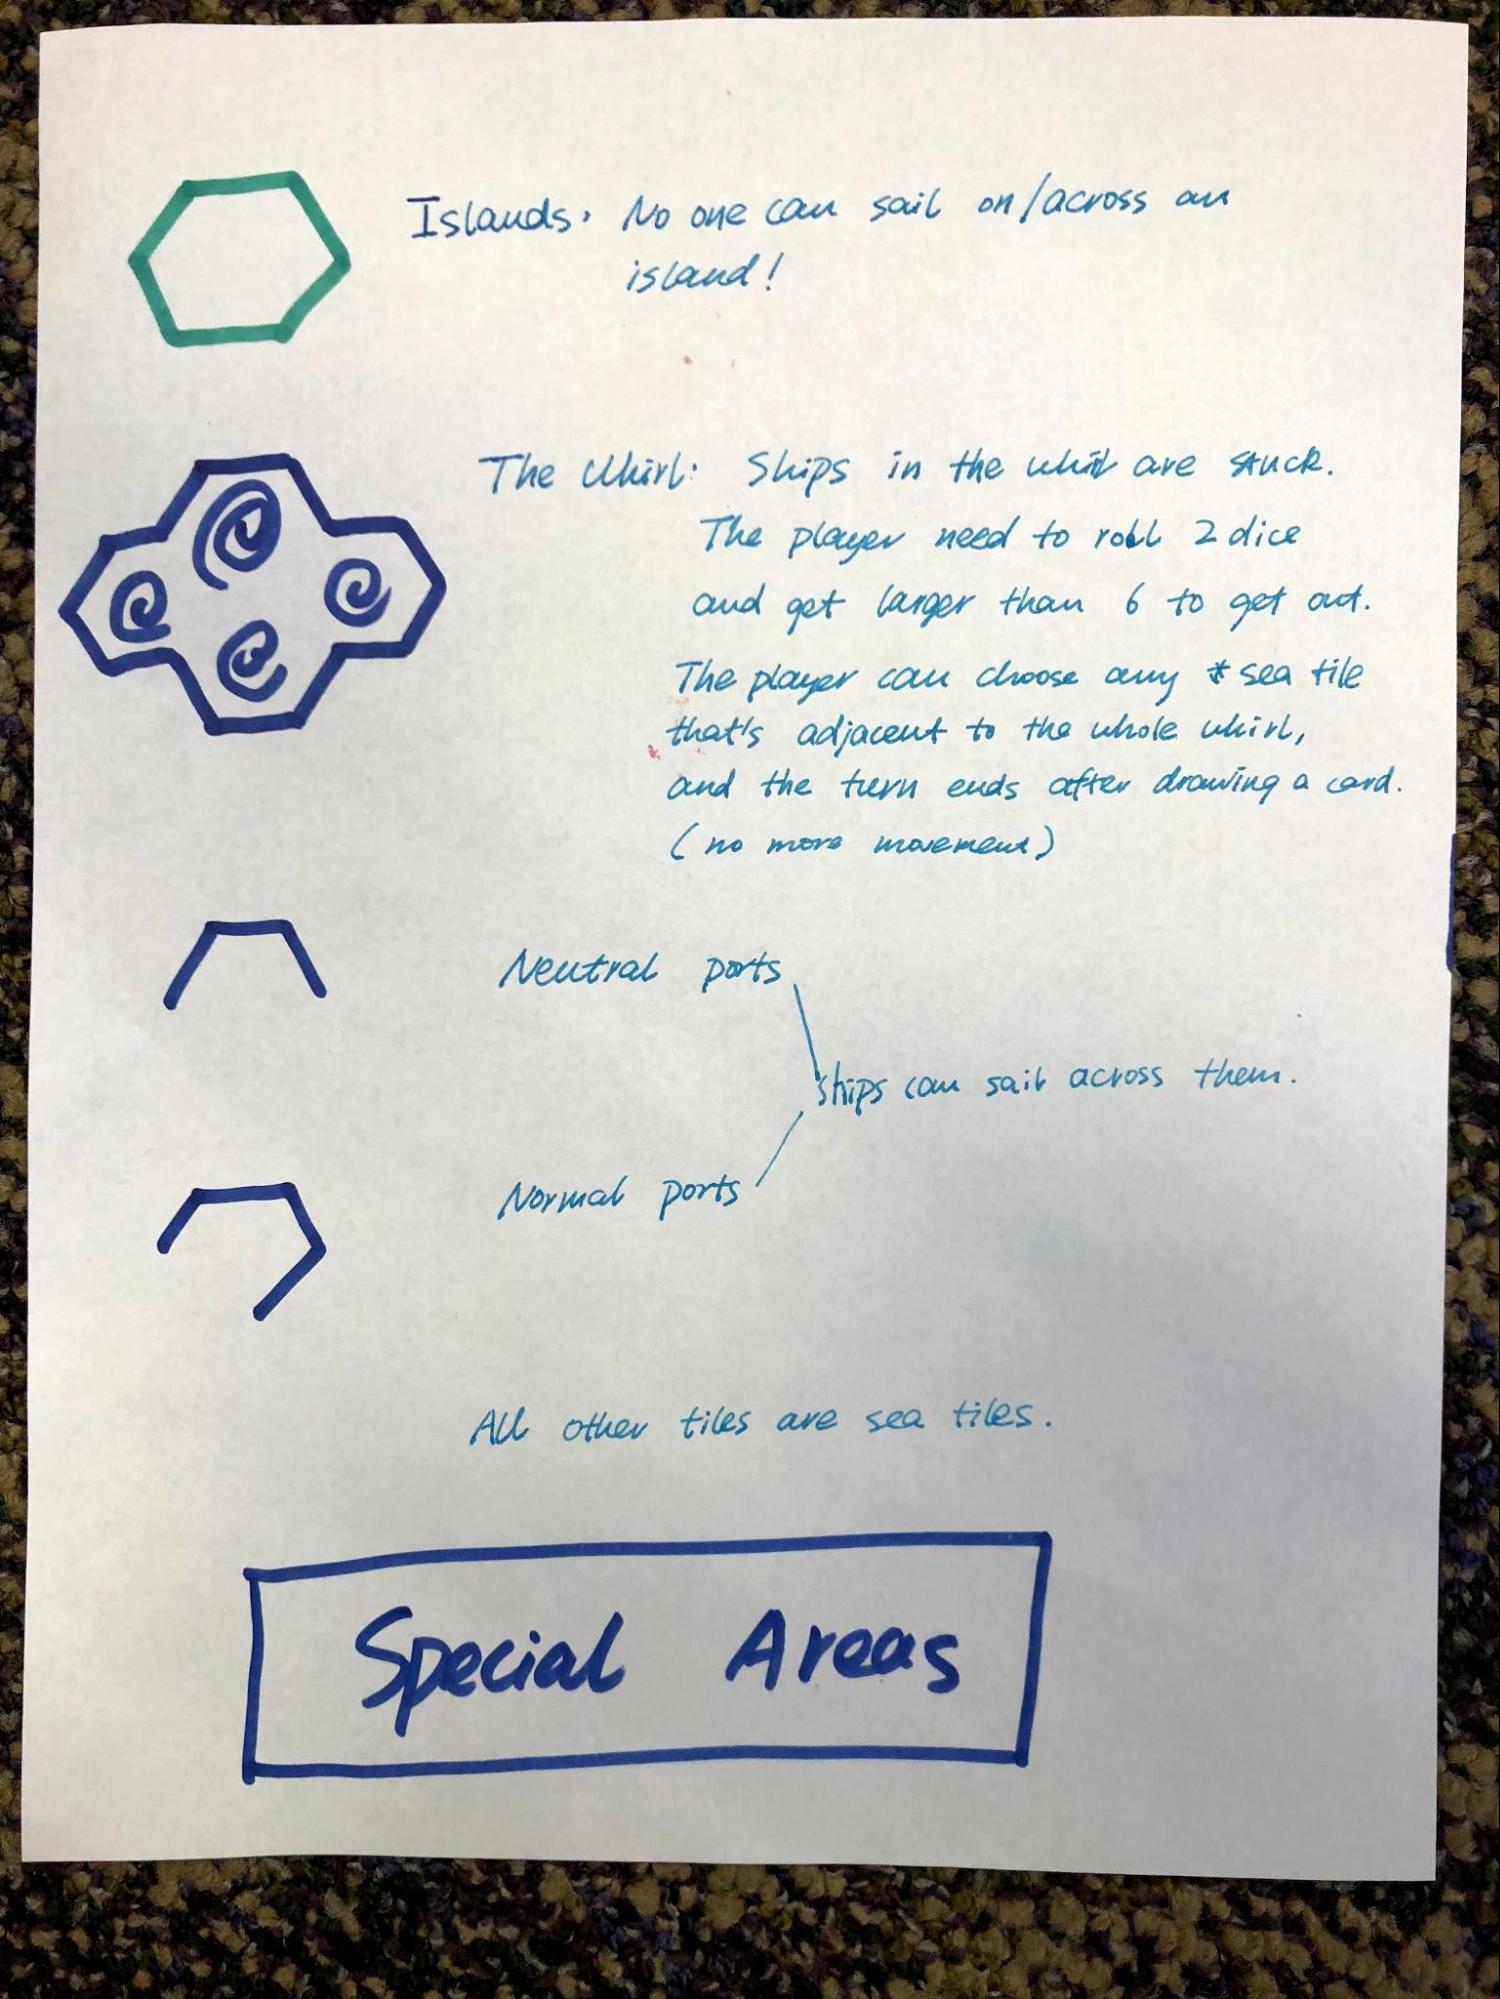 Islands. No one can sail on/across an
island!
The Whirl: Ships in the whirl are stuck.
The player need to roll 2 dice
and get larger than 6 to get out.
The player can choose any * sea tile
that's adjacent to the whole whirl,
and the turn ends after drawing a card.
(no more movement)
Neutral ports
ships can sail across them.
Normal ports
All other tiles are sea tiles.
Special Areas